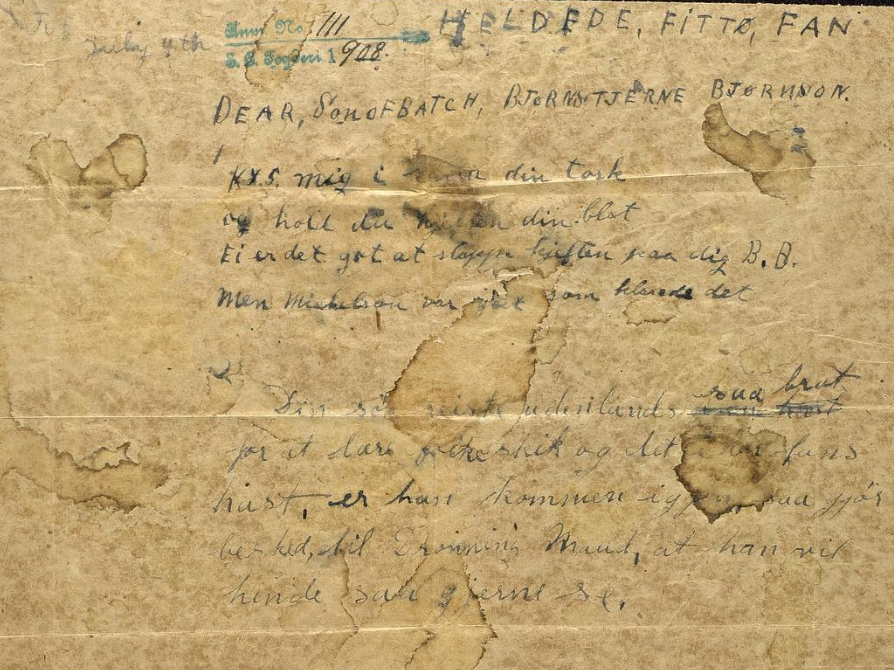 July 4th
Ann No. 111
1908.
HELDEDE, FiTTØ, FAN
DEAR, SonOFBATCH, BJØRNSTJERNE BJØRNSON.
1
Kys mig i din tørk
og hold du din blot
Ei er det got at slappe kjeften paa dig B. B.
Men Mickelson var som klarede det
2
saa brat
Din reiste udenlands
for at lære folkeskik og det fans
hast, er han kommen igjen, saa gjør
besked, til Dronning Maud, at han vil
hinde saa gjerne se.